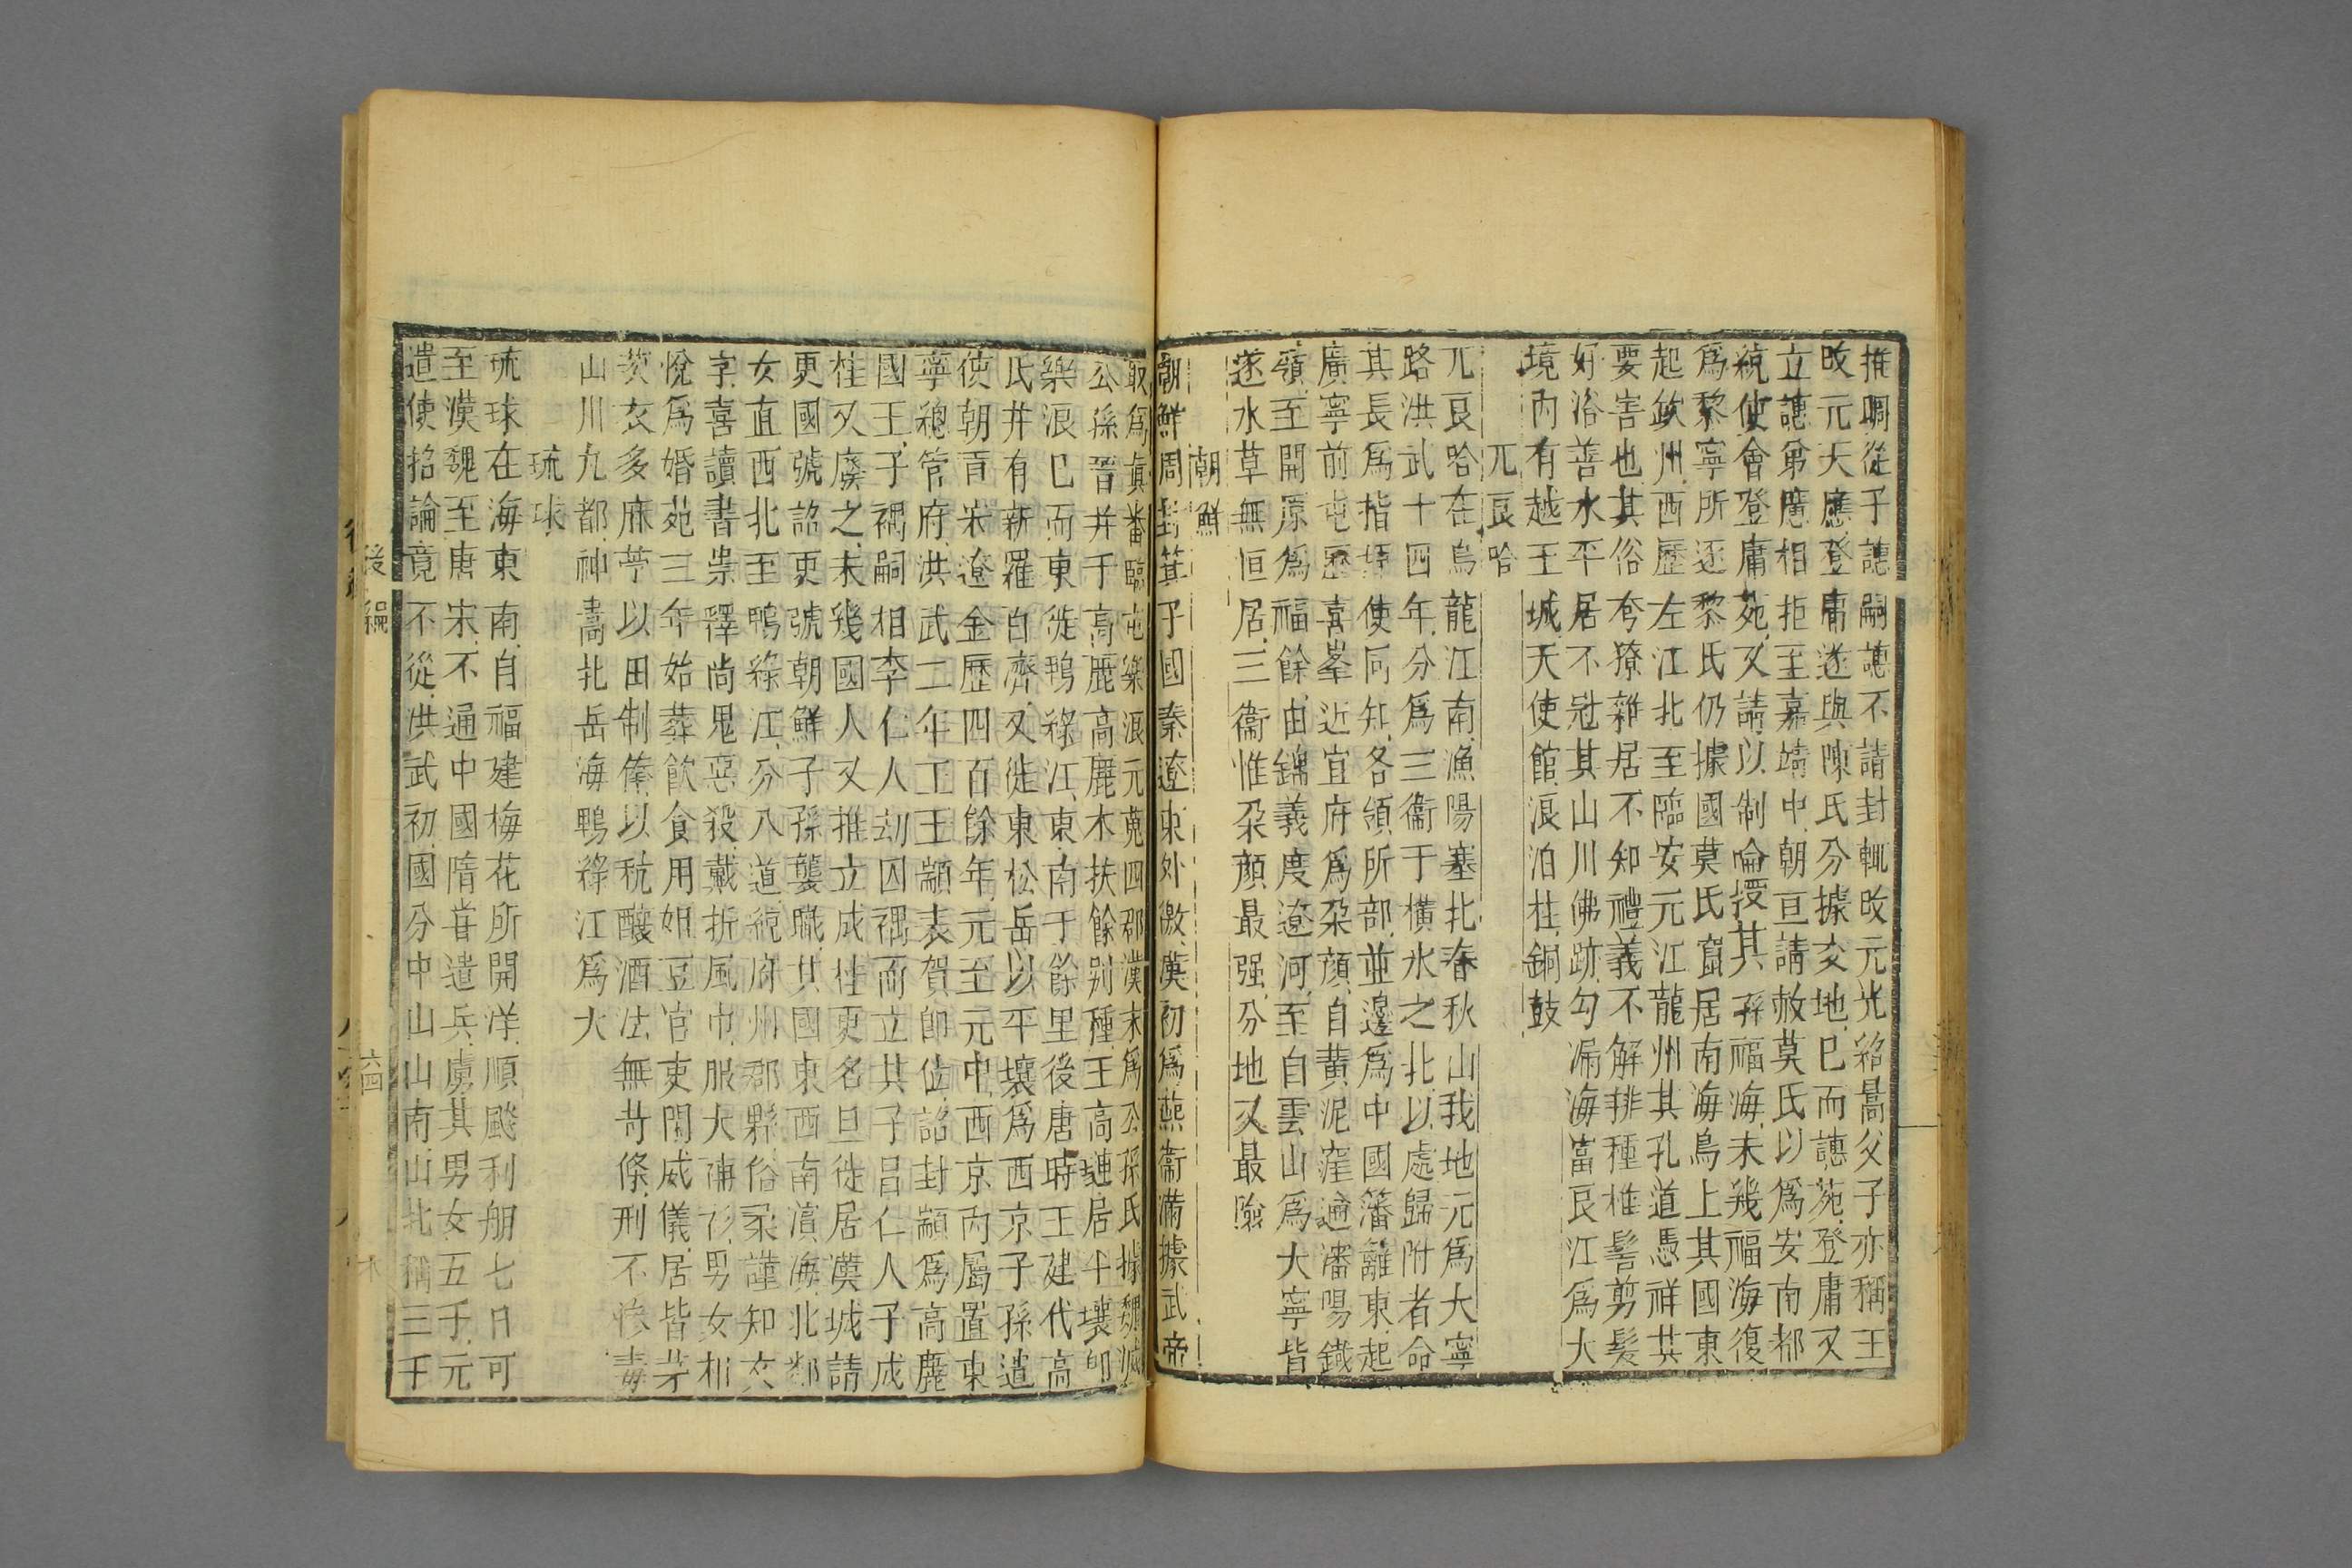 推晭從子譓嗣譓不請封輒改元光紹暠父子亦稱王
改元天應登庸遂與陳氏分據交地已而譓苑登庸又
立譓弟廣相拒至嘉靖中朝亘請赦莫氏以爲安南都
統使會登庸苑又請以制喻授其孫福海未幾福海復
爲黎寧所逐黎氏仍據國莫氏竄居南海烏上其國東
起欽州西歷左江北至臨安元江龍州其孔道憑祥其
要害也其俗夸獠雜居不知禮義不解排種椎髻剪髮
好浴善水平居不冠其山川佛跡勾漏海富良江爲大
境內有越王城天使館浪泊柱銅鼓
兀良哈
兀良哈在烏龍江南漁陽塞北春秋山我地元爲大寧
路洪武十四年分爲三衞于橫水之北以處歸附者命
其長爲指揮使同知各領所部並邊爲中國籓籬東起
廣寧前屯歷喜峯近宣府爲朶顔自黃泥窪逾瀋陽鐵
嶺至開原爲福餘由錦義度遼河至自雲山爲大寧皆
逐水草無恒居三衞惟朶顔最强分地又最險
朝鮮
朝鮮周封箕子國秦遼東外徼漢初爲燕衞滿據武帝
取爲真番臨屯樂浪元菟四郡漢末爲公孫氏據魏滅
公孫晉并于高麗高麗本扶餘别種王高璉居平壤卽
樂浪已而東徙鴨綠江東南于餘里後唐時王建代高
氏并有新羅百濟又徙東松岳以平壤爲西京子孫遣
使朝貢宋遼金歷四百餘年元至元中西京內屬置東
寧總管府洪武二年王王顓表賀卽位詔封顓爲高麗
國王子禑嗣相李仁人劫囚禑而立其子昌仁人子成
桂又廢之未幾國人又推立成桂更名旦徙居漢城請
更國號詔更號朝鮮子孫襲職其國東西南濱海北鄰
女直西北至鴨綠江分八道統府州郡縣俗柔謹知文
字喜讀書崇釋尚鬼惡殺戴折風巾服大袖衫男女相
悅爲婚苑三年始葬飲食用俎豆官吏閑威儀居皆茅
茨衣多麻苧以田制俸以秔釀酒法無苛條刑不慘毒
山川九都神嵩北岳海鴨綠江爲大
琉球
琉球在海東南自福建梅花所開洋順颷利舶七日可
至漢魏至唐宋不通中國隋甞遣兵虜其男女五千元
遣使招論竟不從洪武初國分中山山南山北稱三王
後編
六四